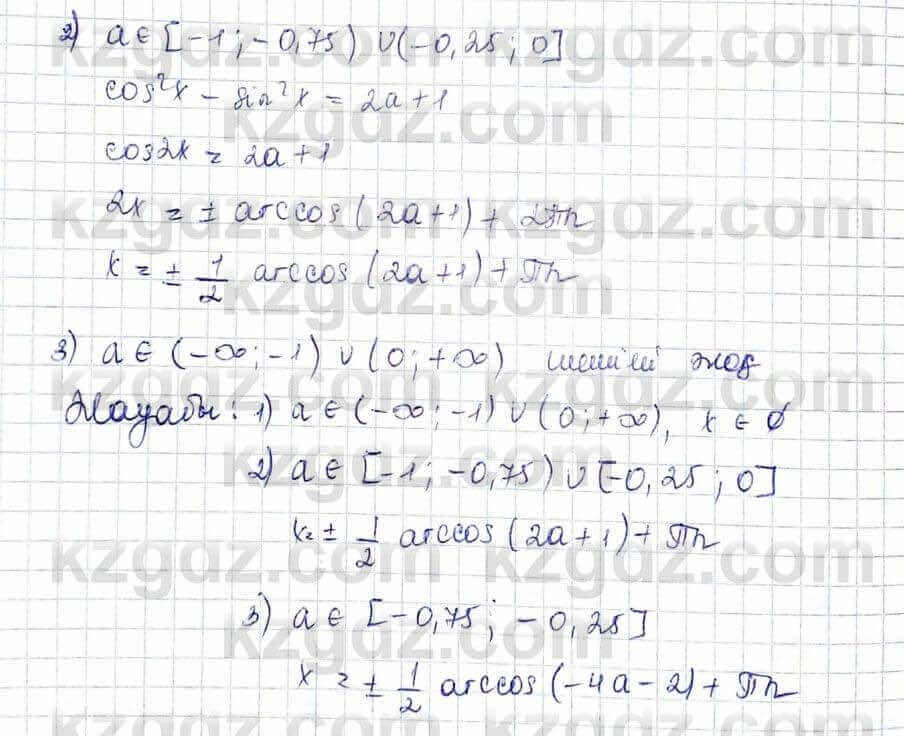 2) a ∈ [-1; -0,75) ∪ (-0,25; 0]
cos²x - sin²x = 2a+1
cos2x = 2a+1
2x = ± arccos(2a+1) + 2πn
x = ± 1/2 arccos(2a+1) + πn
3) a ∈ (-∞; -1) ∪ (0; +∞) шешімі жоқ
Жауабы: 1) a ∈ (-∞; -1) ∪ (0; +∞), x ∈ ∅
2) a ∈ [-1; -0,75) ∪ [-0,25; 0]
x = ± 1/2 arccos(2a+1) + πn
3) a ∈ [-0,75; -0,25]
x = ± 1/2 arccos(-4a-2) + πn
kzgdz.com